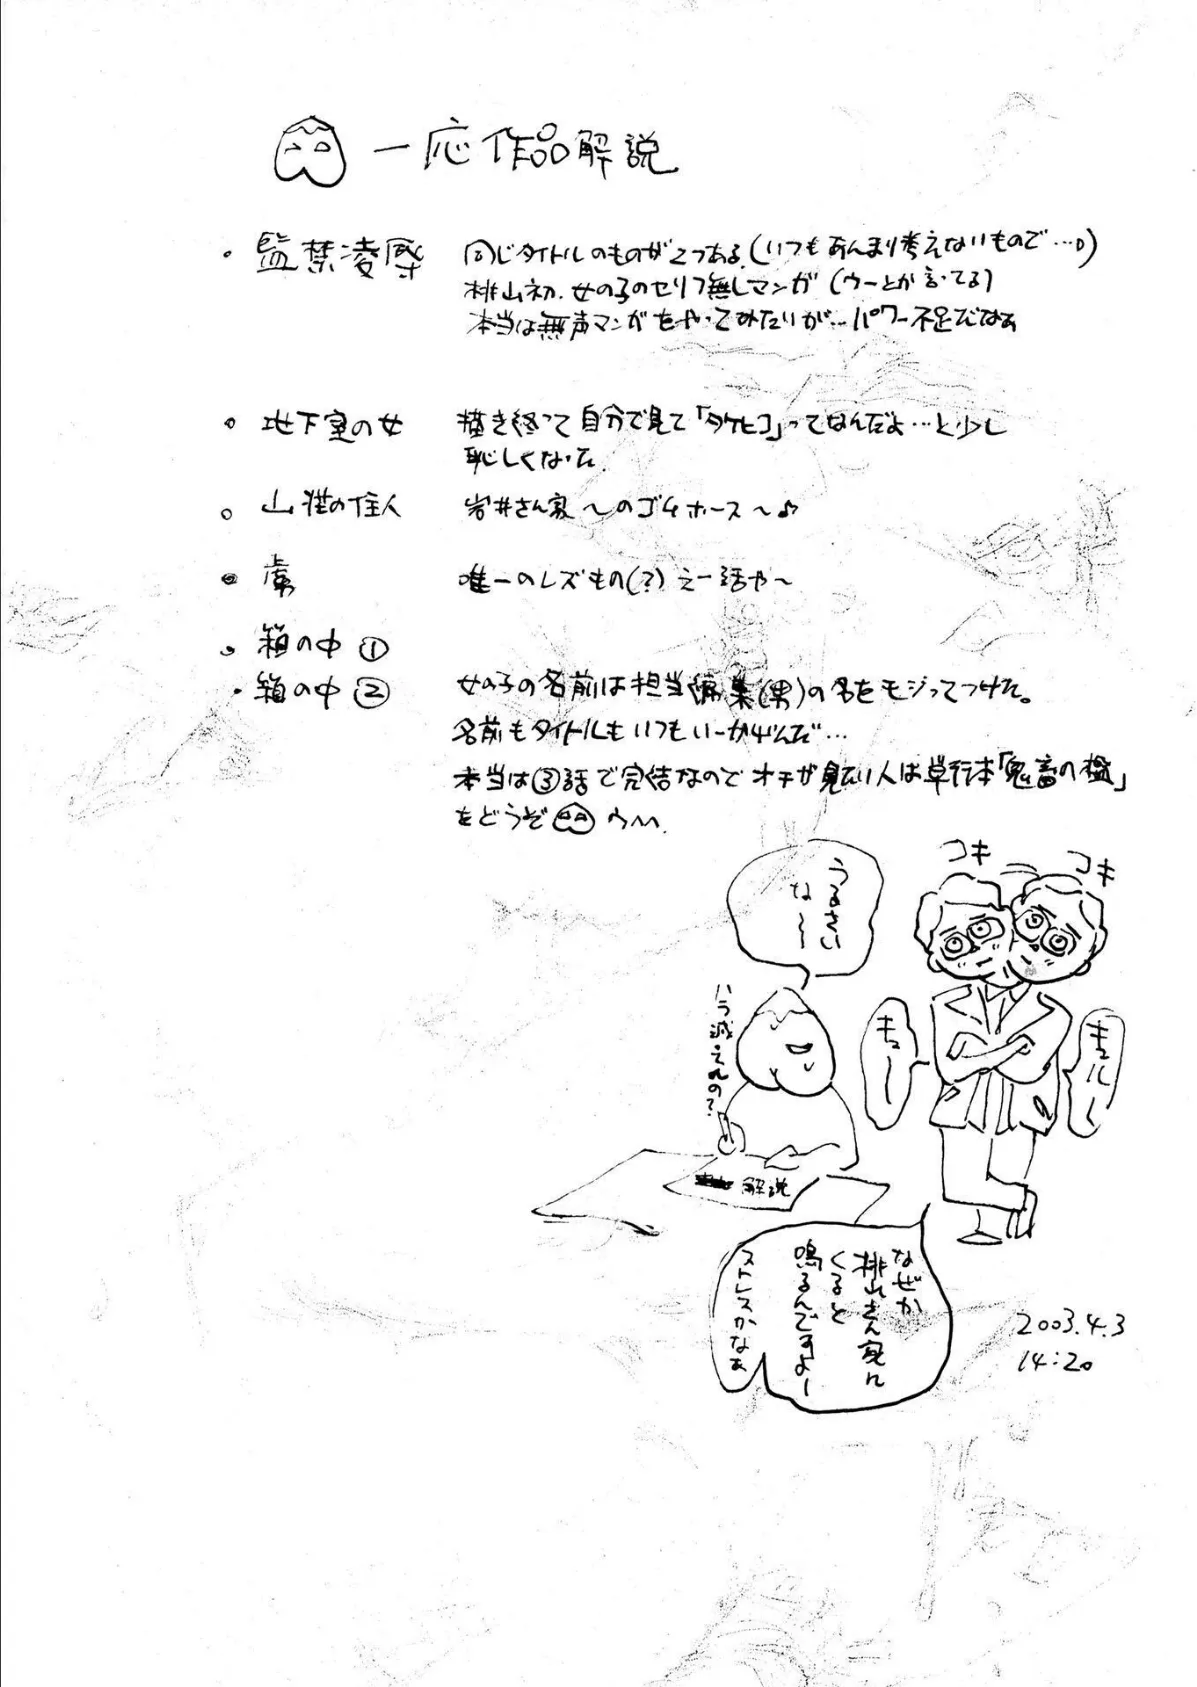 一応作品解説
・監禁凌辱 同じタイトルのものが2つある。(いつもあんまり考えないもので…)
桃山初、女の子のセリフ無しマンガ(ウーとか言ってる)
本当は無声マンガをやってみたいが…パワー不足だなぁ
・地下室の女 描き終って自分で見て「タケヒコ」ってなんだよ…と少し
恥しくなった
・山荘の住人 岩井さん家〜のゴムホース〜♪
・虜 唯一のレズもの(?)えー話や〜
・箱の中①
・箱の中② 女の子の名前は担当編集(男)の名をモジってつけた。
名前もタイトルもいつもいーかげんだ…
本当は③話で完結なのでオチが見たい人は単行本「鬼畜の檻」
をどうぞ
コキ
コキ
うるさい
な〜〜
ハラ減ってんの?
キュー
キュルル
解説
なぜか
桃山さん家に
くると
鳴るんですよー
ストレスかなぁ
2003.4.3
14:20